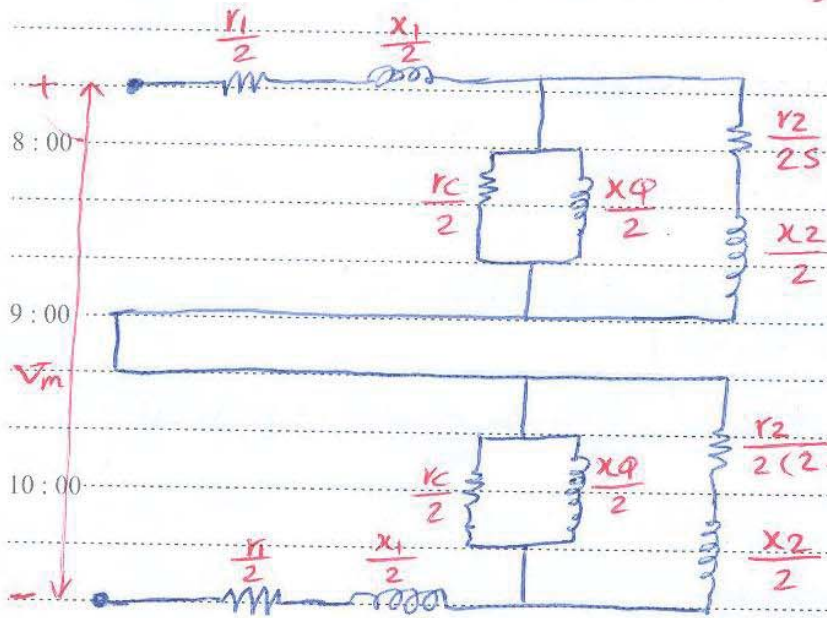 r1/2 x1/2
+
8:00 r2/2S
rc/2 xφ/2
x2/2
9:00
Vm
r2/2(2
10:00 rc/2 xφ/2
r1/2 x1/2 x2/2
-